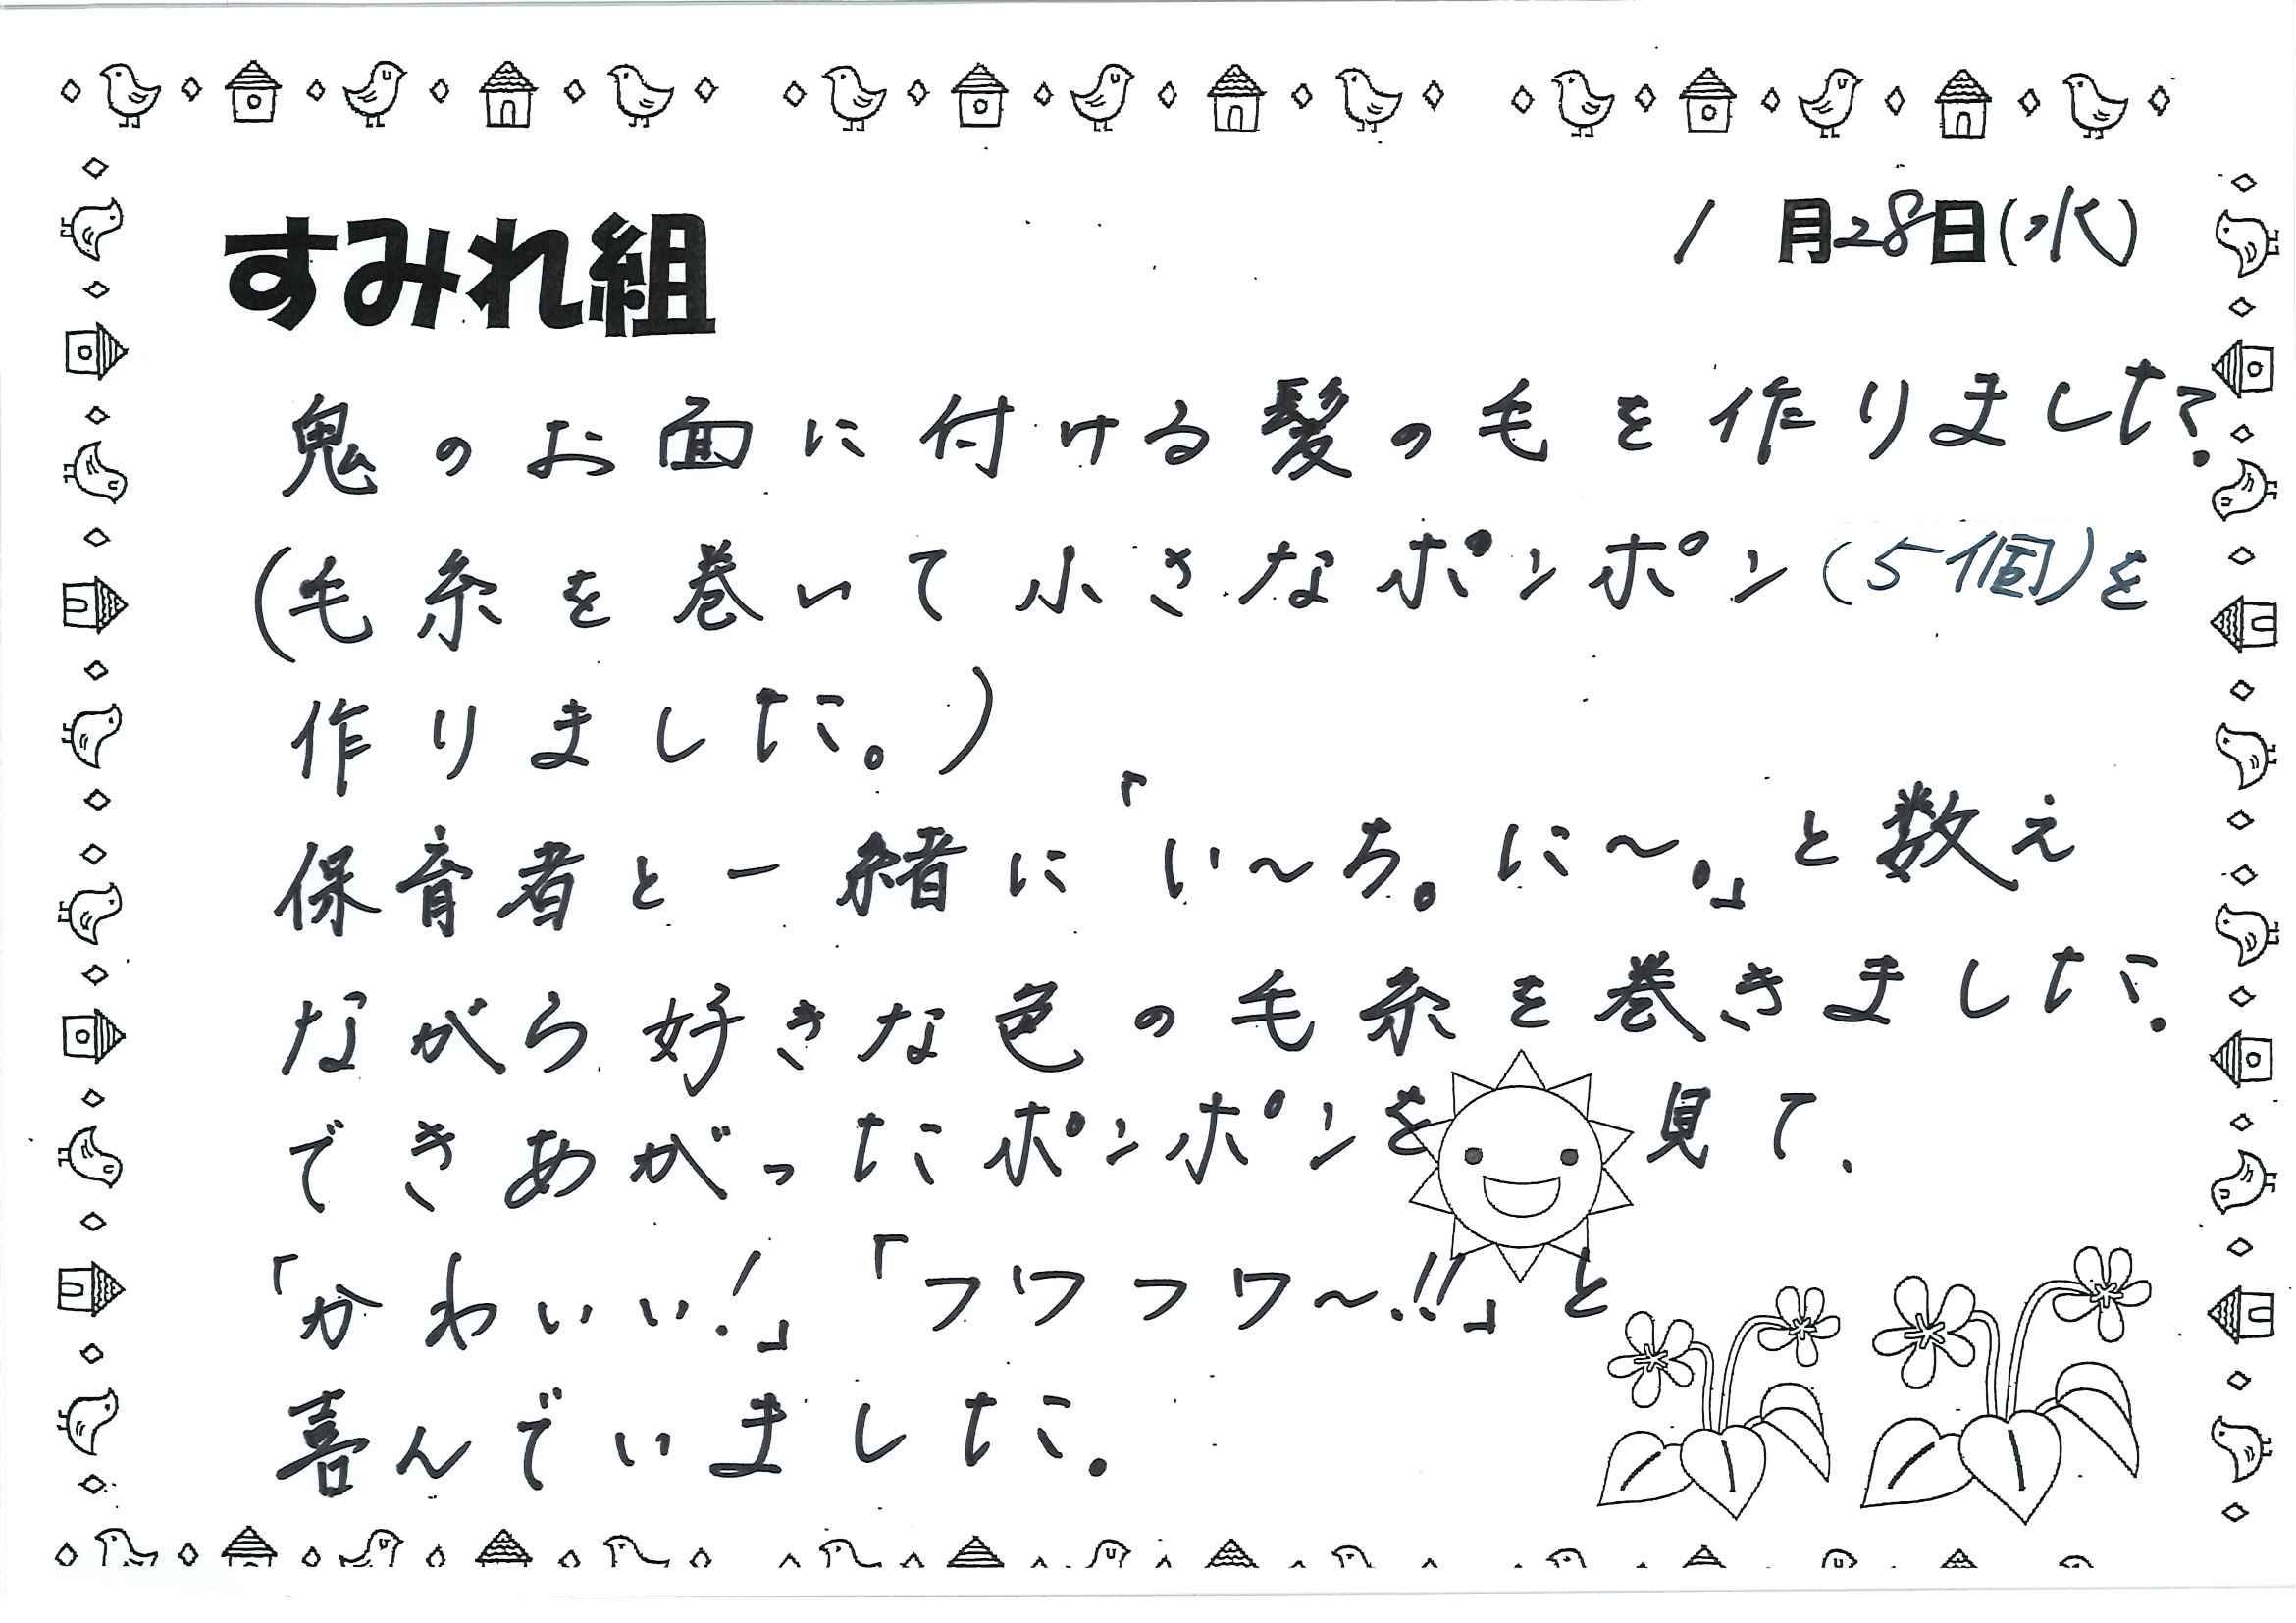 すみれ組
1月28日(水)
鬼のお面に付ける髪の毛を作りました。
(毛糸を巻いて小さなポンポン(5個)を
作りました。)
保育者と一緒に「い〜ち。に〜。」と数え
ながら好きな色の毛糸を巻きました。
できあがったポンポンを見て、
「かわいい!」「フワフワ〜!!」と
喜んでいました。